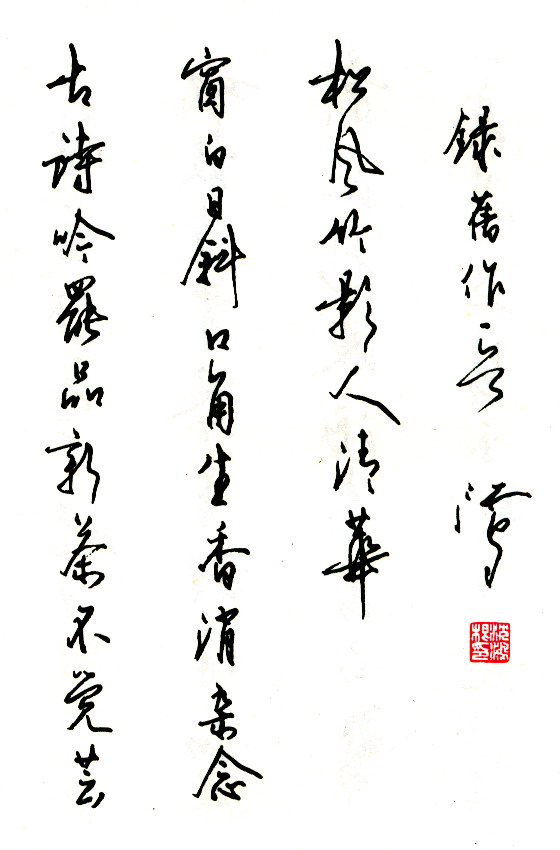 古詩吟罷品新茶不觉芸
窗白日斜口角生香消杂念
松风竹影入清華
録舊作一首